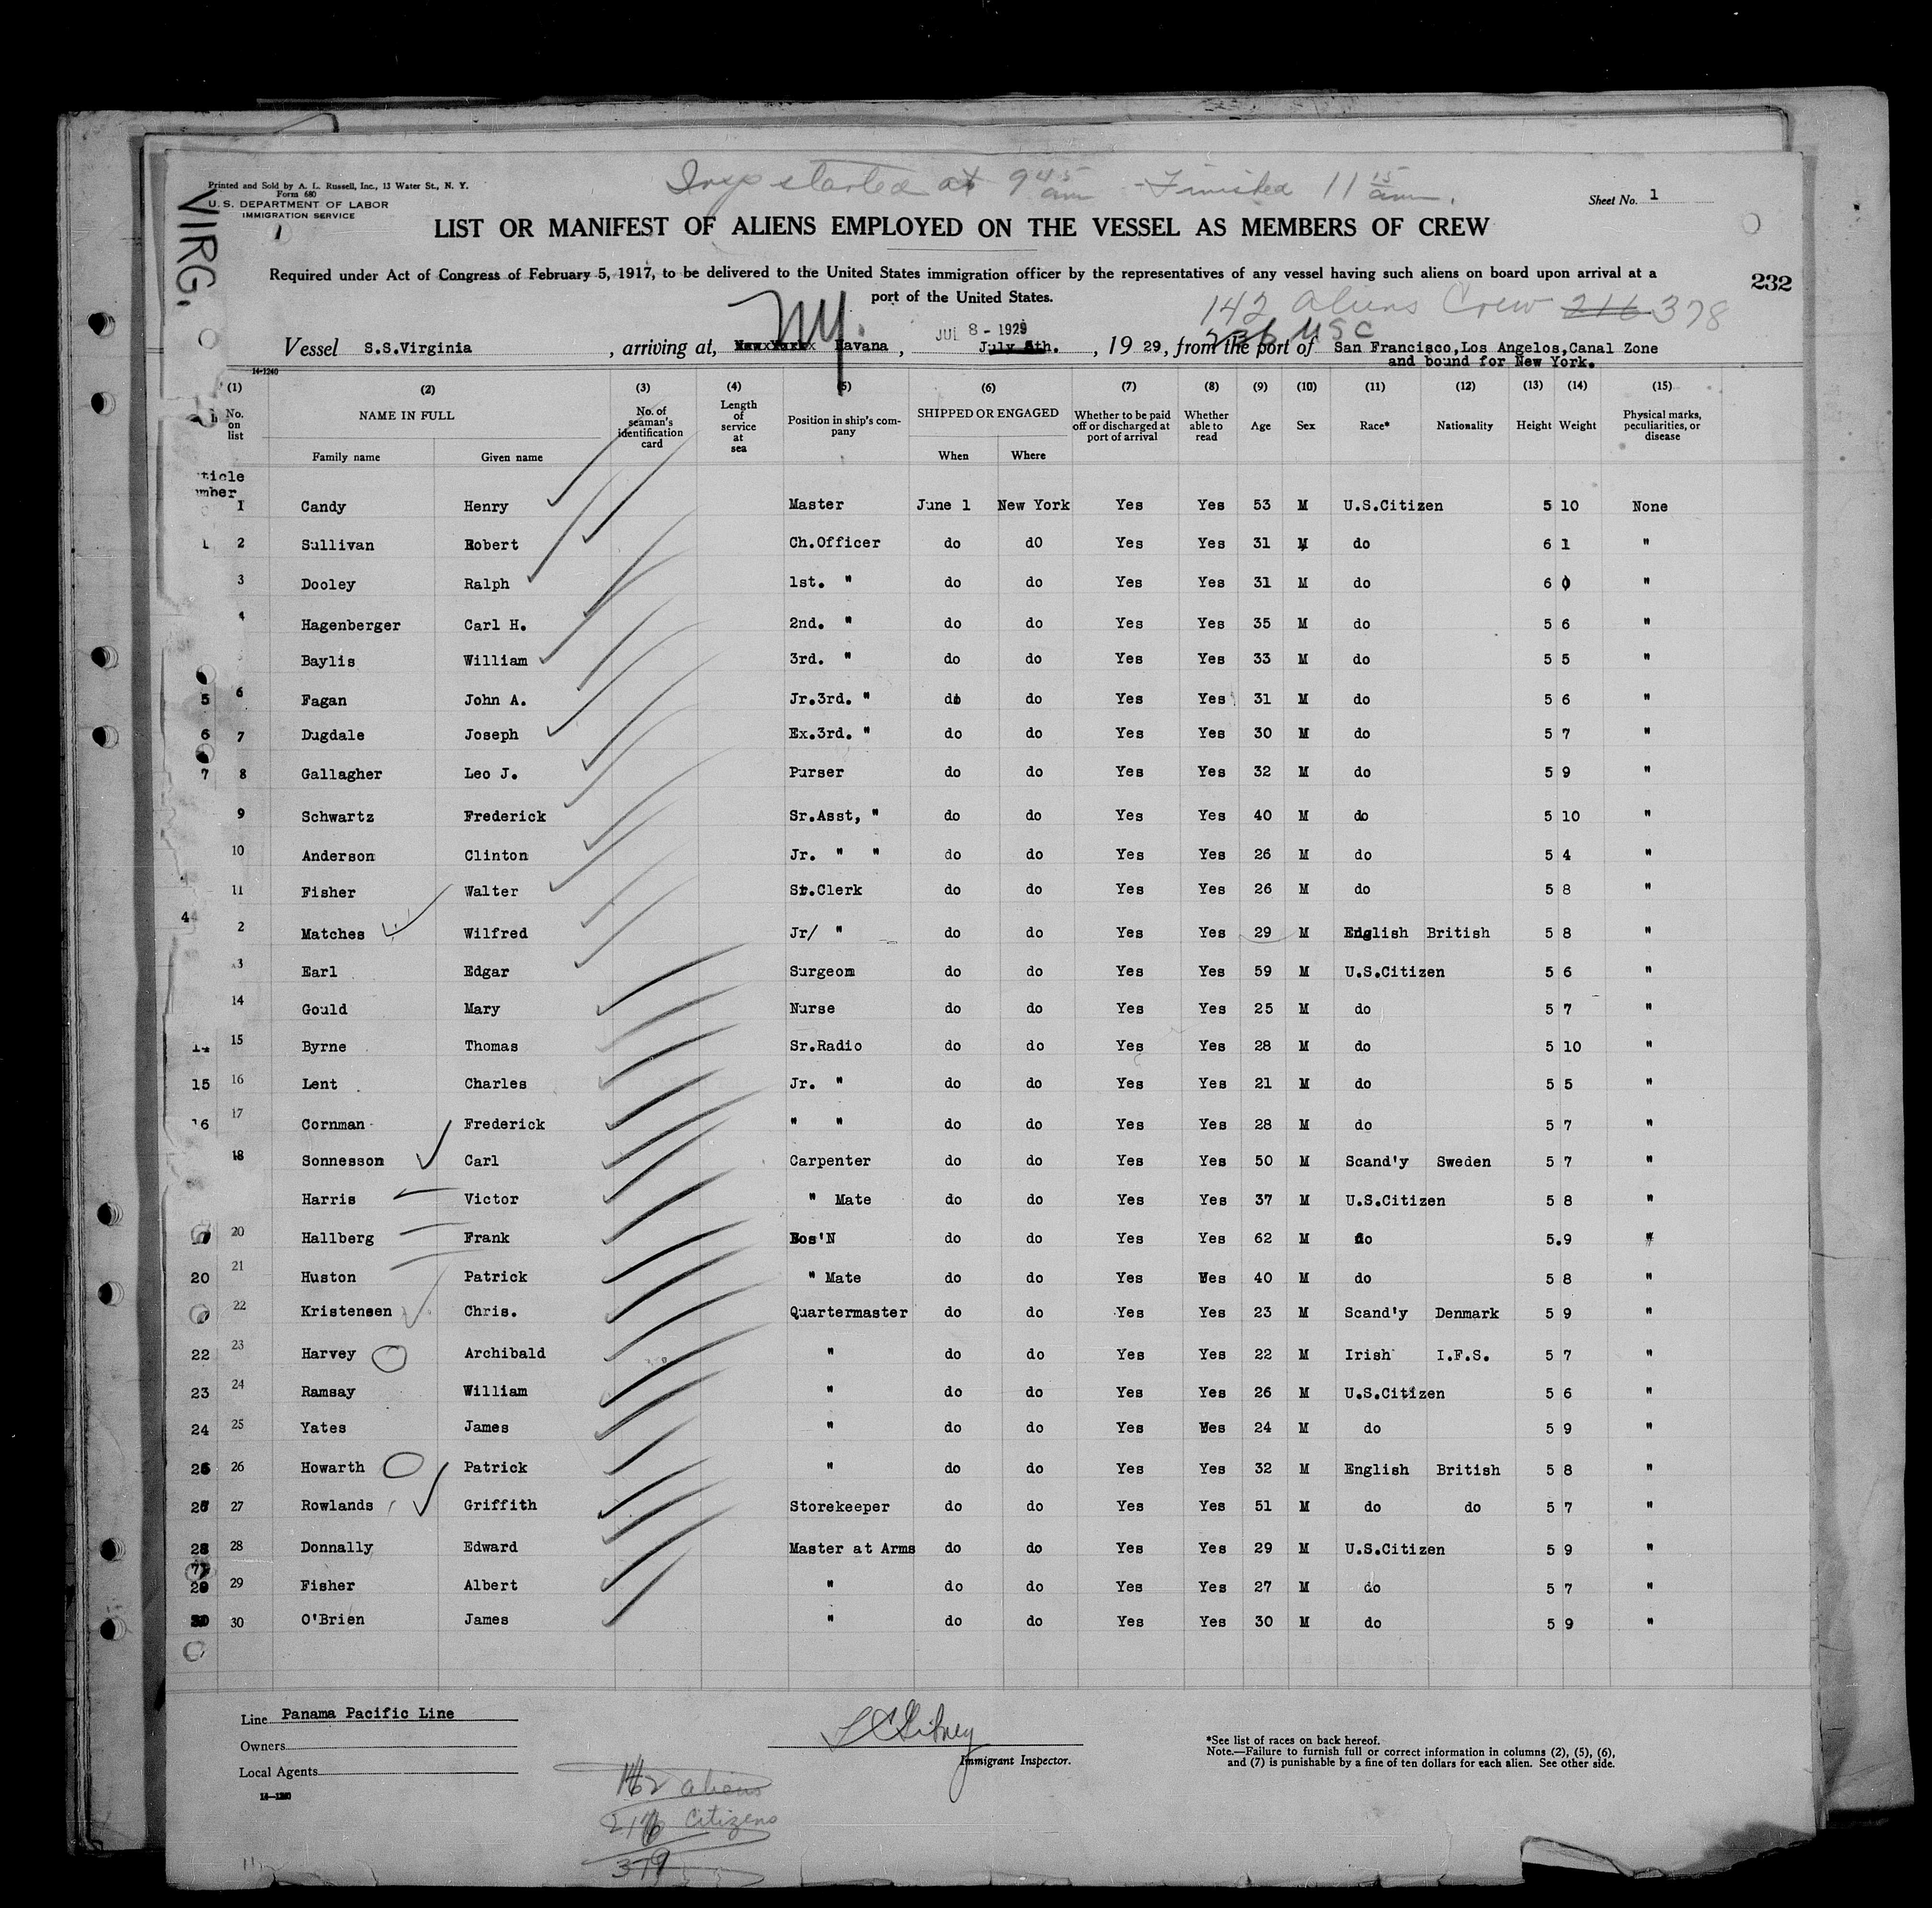 VIRG.
Printed and Sold by A. L. Russell, Inc., 13 Water St., N. Y.
Form 680
U. S. DEPARTMENT OF LABOR
IMMIGRATION SERVICE
Insp started at 9 45 am - Finished 11 15 am.
Sheet No. 1
LIST OR MANIFEST OF ALIENS EMPLOYED ON THE VESSEL AS MEMBERS OF CREW
Required under Act of Congress of February 5, 1917, to be delivered to the United States immigration officer by the representatives of any vessel having such aliens on board upon arrival at a
port of the United States.
232
142 aliens Crew 216 378
236 USC
NY.
JUL 8 - 1929
Vessel S.S.Virginia , arriving at, New York Havana , July 5th. , 19 29, from the port of San Francisco,Los Angelos,Canal Zone
and bound for New York.
14-1240
(1) (2) (3) (4) (5) (6) (7) (8) (9) (10) (11) (12) (13) (14) (15)
No. on list NAME IN FULL No. of seaman's identification card Length of service at sea Position in ship's company SHIPPED OR ENGAGED Whether to be paid off or discharged at port of arrival Whether able to read Age Sex Race* Nationality Height Weight Physical marks, peculiarities, or disease
Family name Given name When Where
ticle
mber
1 Candy Henry Master June 1 New York Yes Yes 53 M U.S.Citizen 5 10 None
1 2 Sullivan Robert Ch.Officer do dO Yes Yes 31 M do 6 1 "
3 Dooley Ralph 1st. " do do Yes Yes 31 M do 6 0 "
4 Hagenberger Carl H. 2nd. " do do Yes Yes 35 M do 5 6 "
Baylis William 3rd. " do do Yes Yes 33 M do 5 5 "
5 6 Fagan John A. Jr.3rd. " do do Yes Yes 31 M do 5 6 "
6 7 Dugdale Joseph Ex.3rd. " do do Yes Yes 30 M do 5 7 "
7 8 Gallagher Leo J. Purser do do Yes Yes 32 M do 5 9 "
9 Schwartz Frederick Sr.Asst, " do do Yes Yes 40 M do 5 10 "
10 Anderson Clinton Jr. " " do do Yes Yes 26 M do 5 4 "
11 Fisher Walter Sr.Clerk do do Yes Yes 26 M do 5 8 "
4 2 Matches Wilfred Jr/ " do do Yes Yes 29 M English British 5 8 "
3 Earl Edgar Surgeon do do Yes Yes 59 M U.S.Citizen 5 6 "
14 Gould Mary Nurse do do Yes Yes 25 M do 5 7 "
14 15 Byrne Thomas Sr.Radio do do Yes Yes 28 M do 5 10 "
15 16 Lent Charles Jr. " do do Yes Yes 21 M do 5 5 "
16 17 Cornman Frederick " " do do Yes Yes 28 M do 5 7 "
18 Sonnesson Carl Carpenter do do Yes Yes 50 M Scand'y Sweden 5 7 "
Harris Victor " Mate do do Yes Yes 37 M U.S.Citizen 5 8 "
20 Hallberg Frank Bos'N do do Yes Yes 62 M do 5.9 "
20 21 Huston Patrick " Mate do do Yes Yes 40 M do 5 8 "
22 Kristensen Chris. Quartermaster do do Yes Yes 23 M Scand'y Denmark 5 9 "
22 23 Harvey Archibald " do do Yes Yes 22 M Irish I.F.S. 5 7 "
23 24 Ramsay William " do do Yes Yes 26 M U.S.Citizen 5 6 "
24 25 Yates James " do do Yes Yes 24 M do 5 9 "
26 Howarth Patrick " do do Yes Yes 32 M English British 5 8 "
27 Rowlands Griffith Storekeeper do do Yes Yes 51 M do do 5 7 "
28 28 Donnally Edward Master at Arms do do Yes Yes 29 M U.S.Citizen 5 9 "
29 29 Fisher Albert " do do Yes Yes 27 M do 5 7 "
30 30 O'Brien James " do do Yes Yes 30 M do 5 9 "
Line Panama Pacific Line
Owners
Local Agents
14-1240
Immigrant Inspector.
*See list of races on back hereof.
Note.—Failure to furnish full or correct information in columns (2), (5), (6),
and (7) is punishable by a fine of ten dollars for each alien. See other side.
162 aliens
216 Citizens
379